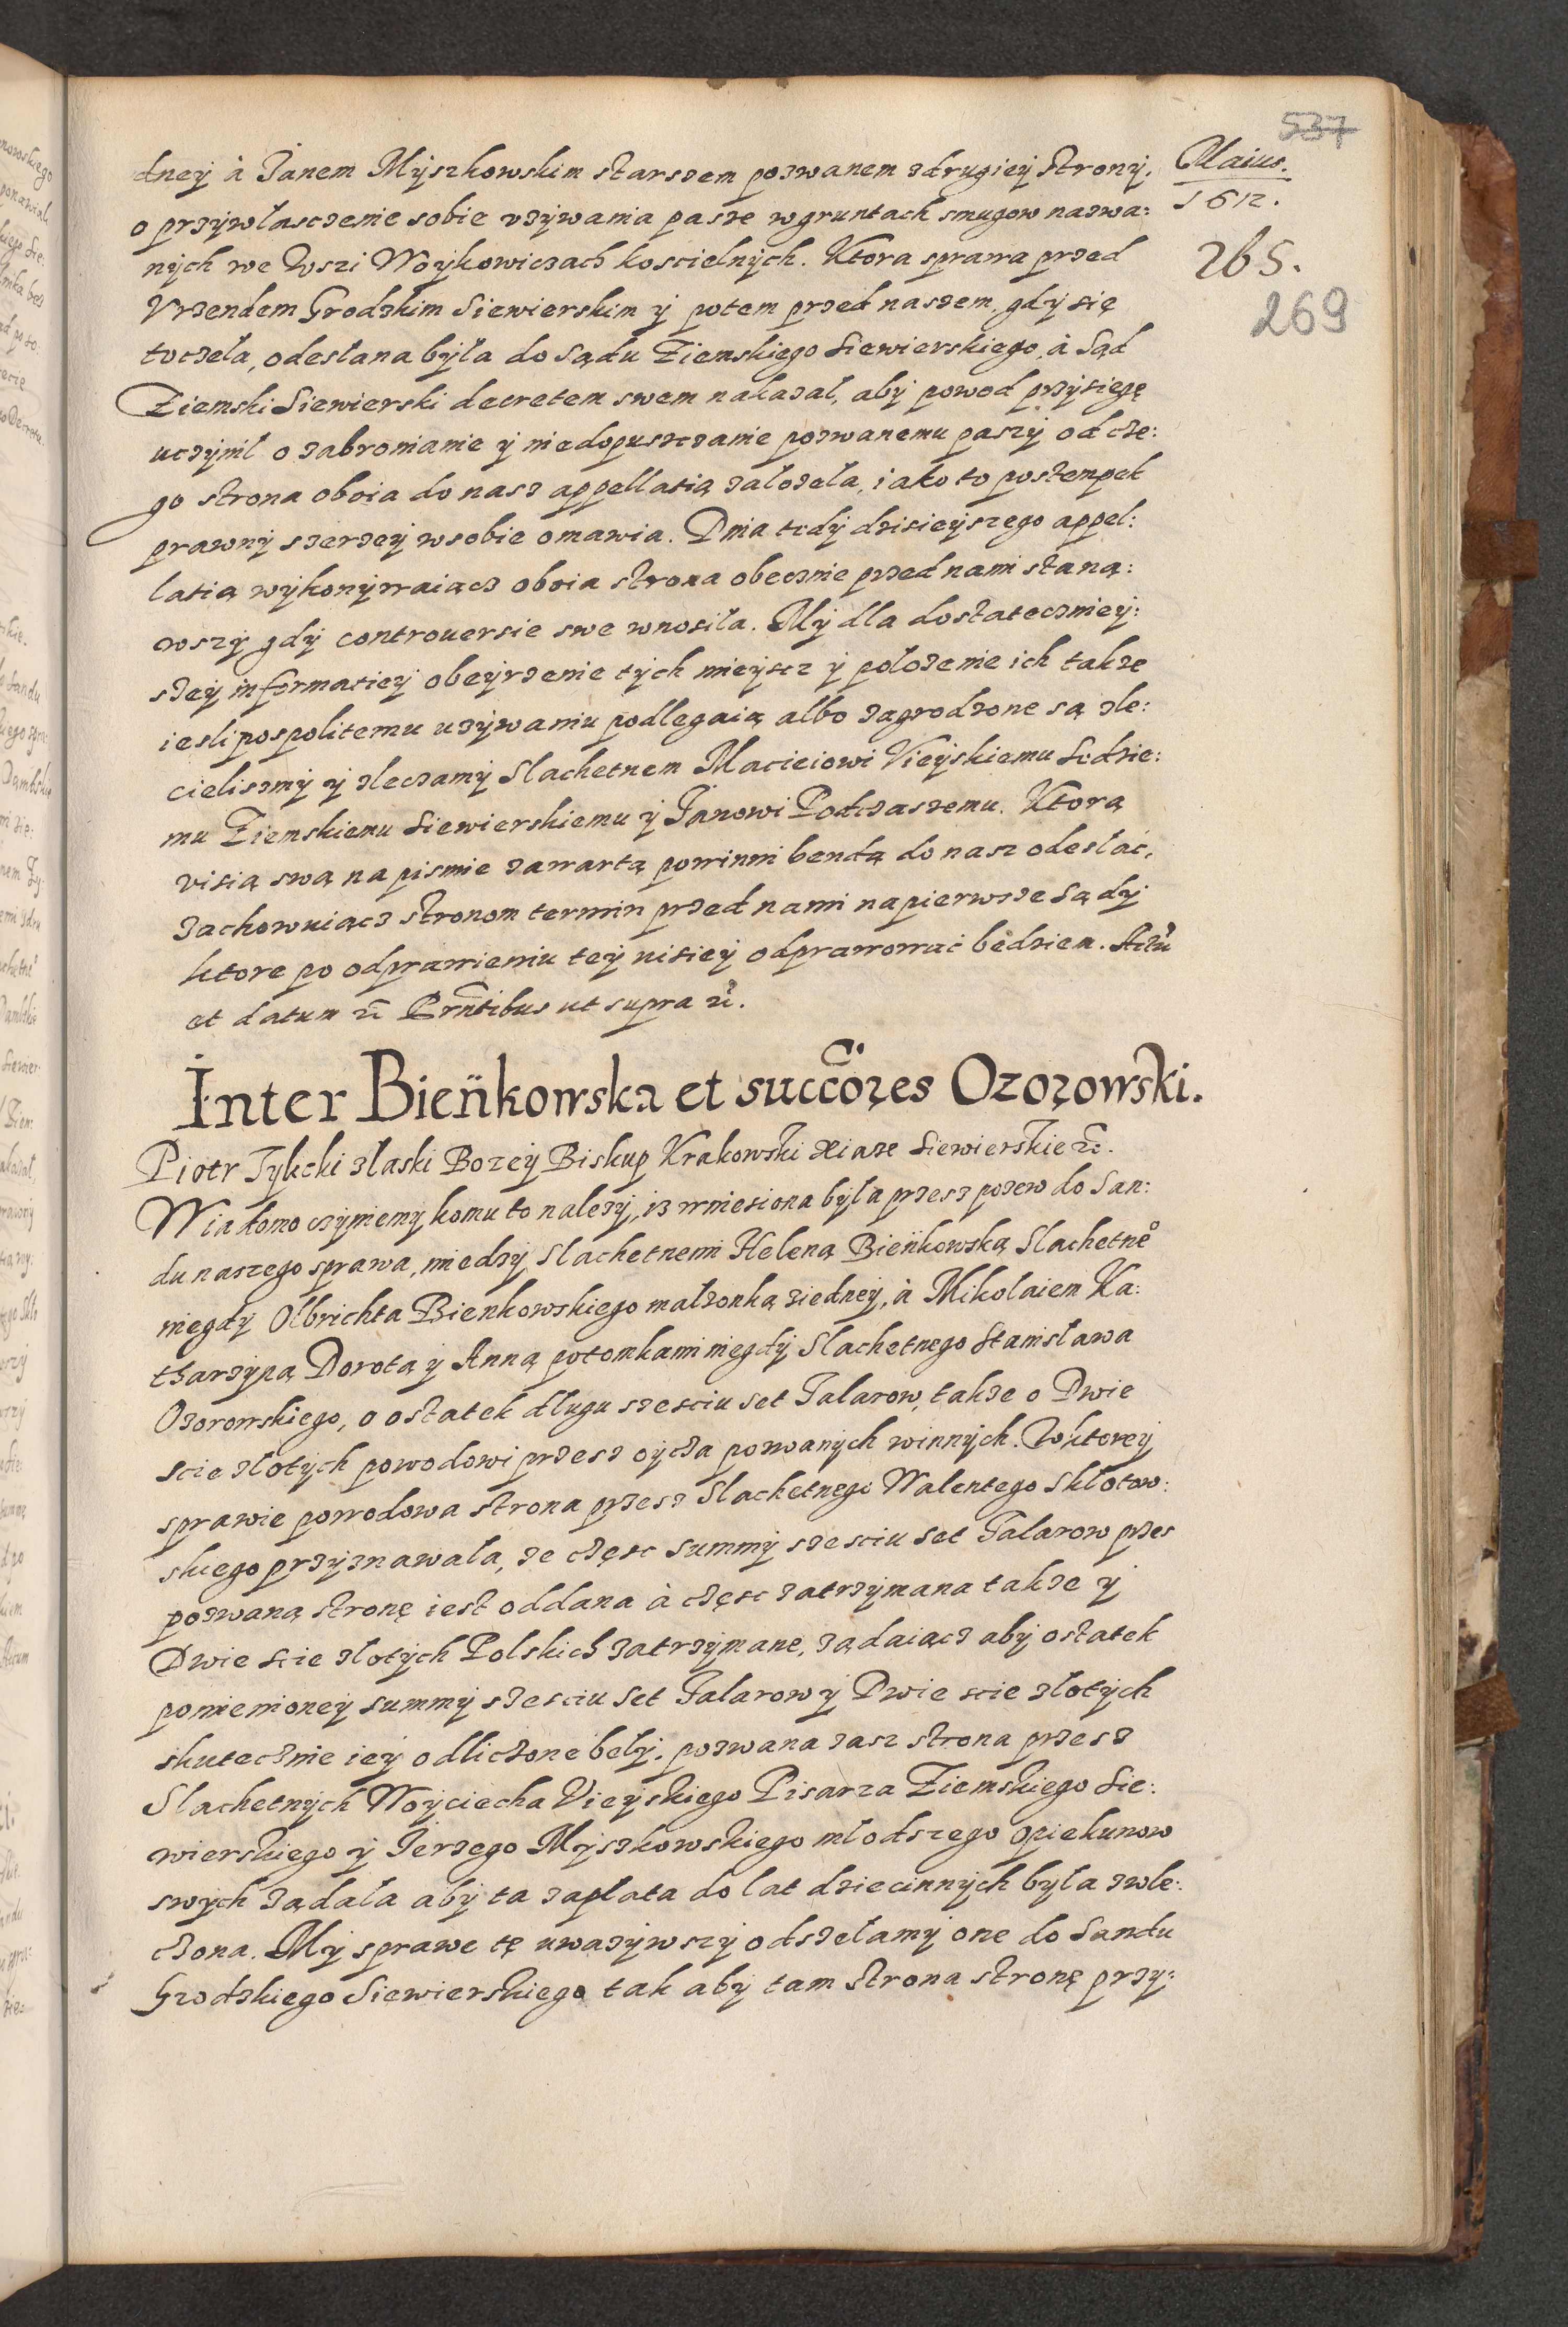 537
Maius.
1612.
265.
269
dney à Janem Myszkowskim starszem pozwanem z drugiey strony,
o przywlasczenie sobie vzywania pasze w gruntach smugow nazwa:
nych we Wszi Woykowiczach koscielnych. Ktora sprawa przed
Vrzendem Grodzkim Siewierskim y potem przed naszem gdy się
toczela, odeslana była do Sądu Ziemskiego Siewierskiego, à Sąd
Ziemski Siewierski decretem swem nakazal, aby powod przysięgę
uczynil o zabronianie y niedopuszczanie pozwanemu paszy od cze:
go strona oboia do nasz appellatią zalozela, iako to postempek
prawny szerzey w sobie omawia. Dnia tedy dzisieyszego appel:
latią wykonywaiącz oboia strona obecznie przed nami staną:
wszy gdy controuersie swe wnosila. My dla dostateczniey:
szey informatiey obeyrzenie tych mieyscz y polozenie ich takze
iesli pospolitemu uzywaniu podlegaią albo zagrodzone są zle:
cielismy y zleczamy Slachetnem Macieiowi Vieyskiemu Sedzie:
mu Ziemskiemu Siewierskiemu y Janowi Podczaszemu. Ktorą
visią swą na pismie zawartą powinni bendą do nasz odeslać,
zachowuiącz stronom termin przed nami na pierwsze Sądy
ktore po odprawieniu tey visiey odprawować bedziem. Actũ
et datum &c Prñtibus ut supra &c.
Inter Bieńkowska et succõres Ozorowski.
Piotr Tylicki z laski Bozey Biskup Krakowski Xiaze Siewierskie &c.
Wiadomo czyniemy komu to nalezy, iz wniesiona była przesz pozew do San:
du naszego sprawa, miedzy Slachetnemi Heleną Bieńkowską Slachetneo
niegdy Olbrichta Bienkowskiego malzonką z iedney, à Mikolaiem Ka:
tharzyną Dorotą y Anną potomkami niegdy Slachetnego Stanisława
Ozorowskiego, o ostatek dlugu szesciu set Talarow, takze o Dwie
scie zlotych powodowi przesz oycza pozwanych winnych. W ktorey
sprawie powodowa strona przesz Slachetnego Walentego Skłotow:
skiego przyznawala, ze częsc summy szesciu set Talarow przes
pozwaną stronę iest oddana à częsc zatrzymana takze y
Dwie scie zlotych Polskich zatrzymane, ządaiącz aby ostatek
pomienioney summy szesciu set Talarow y Dwie scie zlotych
skutecznie iey odliczone bely, pozwana zasz strona przesz
Slachetnych Woyciecha Vieyskiego Pisarza Ziemskiego Sie:
wierskiego y Jerzego Myszkowskiego młodszego opiekunow
swych ządała aby ta zaplata do lat dziecinnych była zwle:
czona. My sprawe tę uwazywszy odszełamy one do Sandu
Grodzkiego Siewierskiego tak aby tam strona stronę przy: